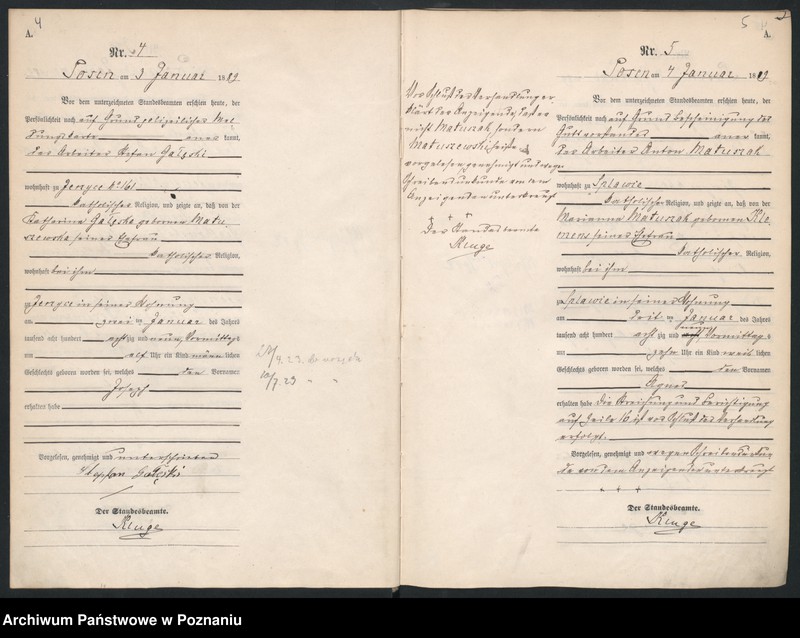 4
A.
Nr. 4
Posen am 3 Januar 1889
Vor dem unterzeichneten Standesbeamten erschien heute, der
Persönlichkeit nach auf Grund polizeilicher Mel
dungskarte anerkannt,
der Arbeiter Stefan Gałęski
wohnhaft zu Jerzyce
katholischer Religion, und zeigte an, daß von der
Katharina Gałęska gebornen Matu
szewska seiner Ehefrau
katholischer Religion,
wohnhaft bei ihm
zu Jerzyce in seiner Wohnung
am zwei ten Januar des Jahres
tausend acht hundert achtzig und neun Vormittags
um elf Uhr ein Kind männlichen
Geschlechts geboren worden sei, welches den Vornamen
Joseph
erhalten habe
Vorgelesen, genehmigt und unterschrieben
Stephan Gałęski
Der Standesbeamte.
Kluge
5
A.
Vor Schluß der Verhandlung er
klärt der Anzeigende, daß er
nicht Maturzak sondern
Maturzewski heiße
vorgelesen genehmigt und wegen
Schreibensunkunde von dem
Anzeigenden unterkreuzt
+ + +
Der Standesbeamte
Kluge
Nr. 5
Posen am 4 Januar 1889
Vor dem unterzeichneten Standesbeamten erschien heute, der
Persönlichkeit nach auf Grund Bescheinigung des
Gutsvorstandes anerkannt,
der Arbeiter Anton Maturzak
wohnhaft zu Splawie
katholischer Religion, und zeigte an, daß von der
Marianna Maturzak gebornen Kle
mens seiner Ehefrau
katholischer Religion,
wohnhaft bei ihm
zu Splawie in seiner Wohnung
am ten Januar des Jahres
tausend acht hundert achtzig und neun Vormittags
um zehn Uhr ein Kind weiblichen
Geschlechts geboren worden sei, welches den Vornamen
Agnes
erhalten habe Die Streichung und Berichtigung
auf Zeile 16 ist vor Schluß der Verhandlung
erfolgt.
Vorgelesen, genehmigt und wegen Schreibensunkun
de von dem Anzeigenden unterkreuzt
+ + +
Der Standesbeamte.
Kluge
Archiwum Państwowe w Poznaniu